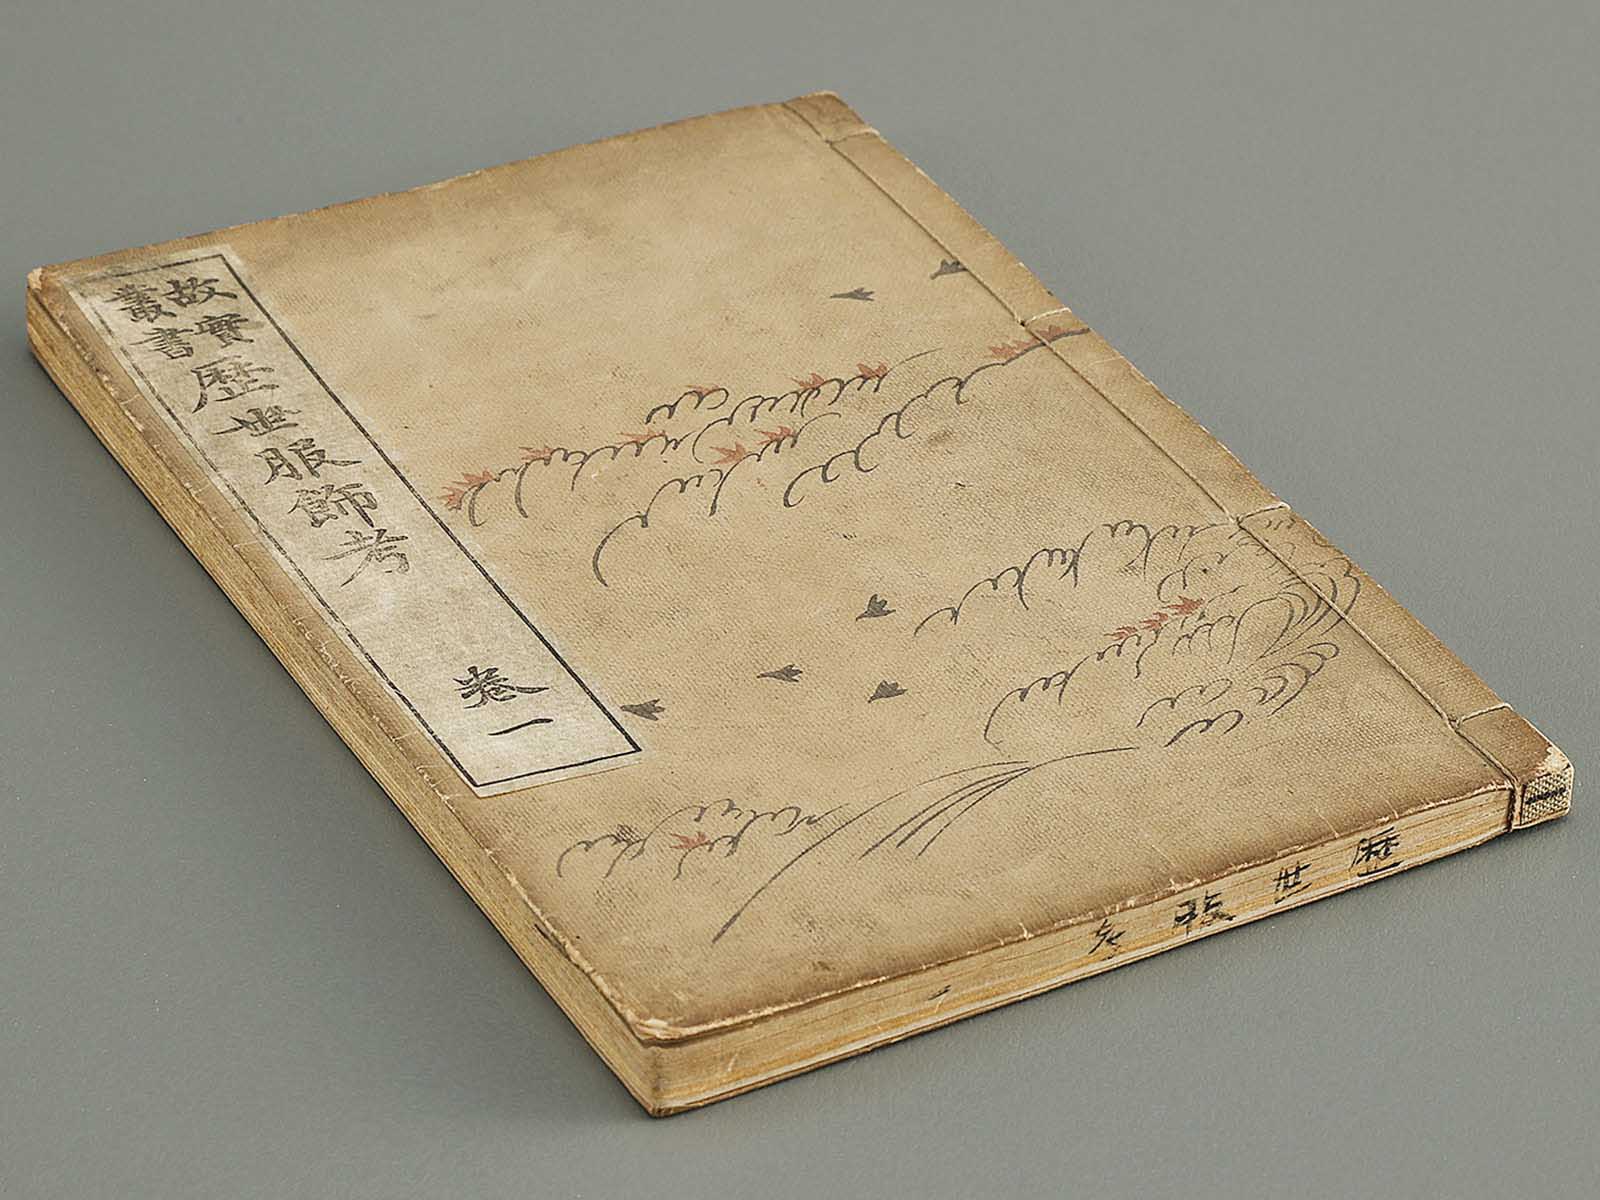 故實
叢書
歷世服飾考
卷一
歷世服考
一